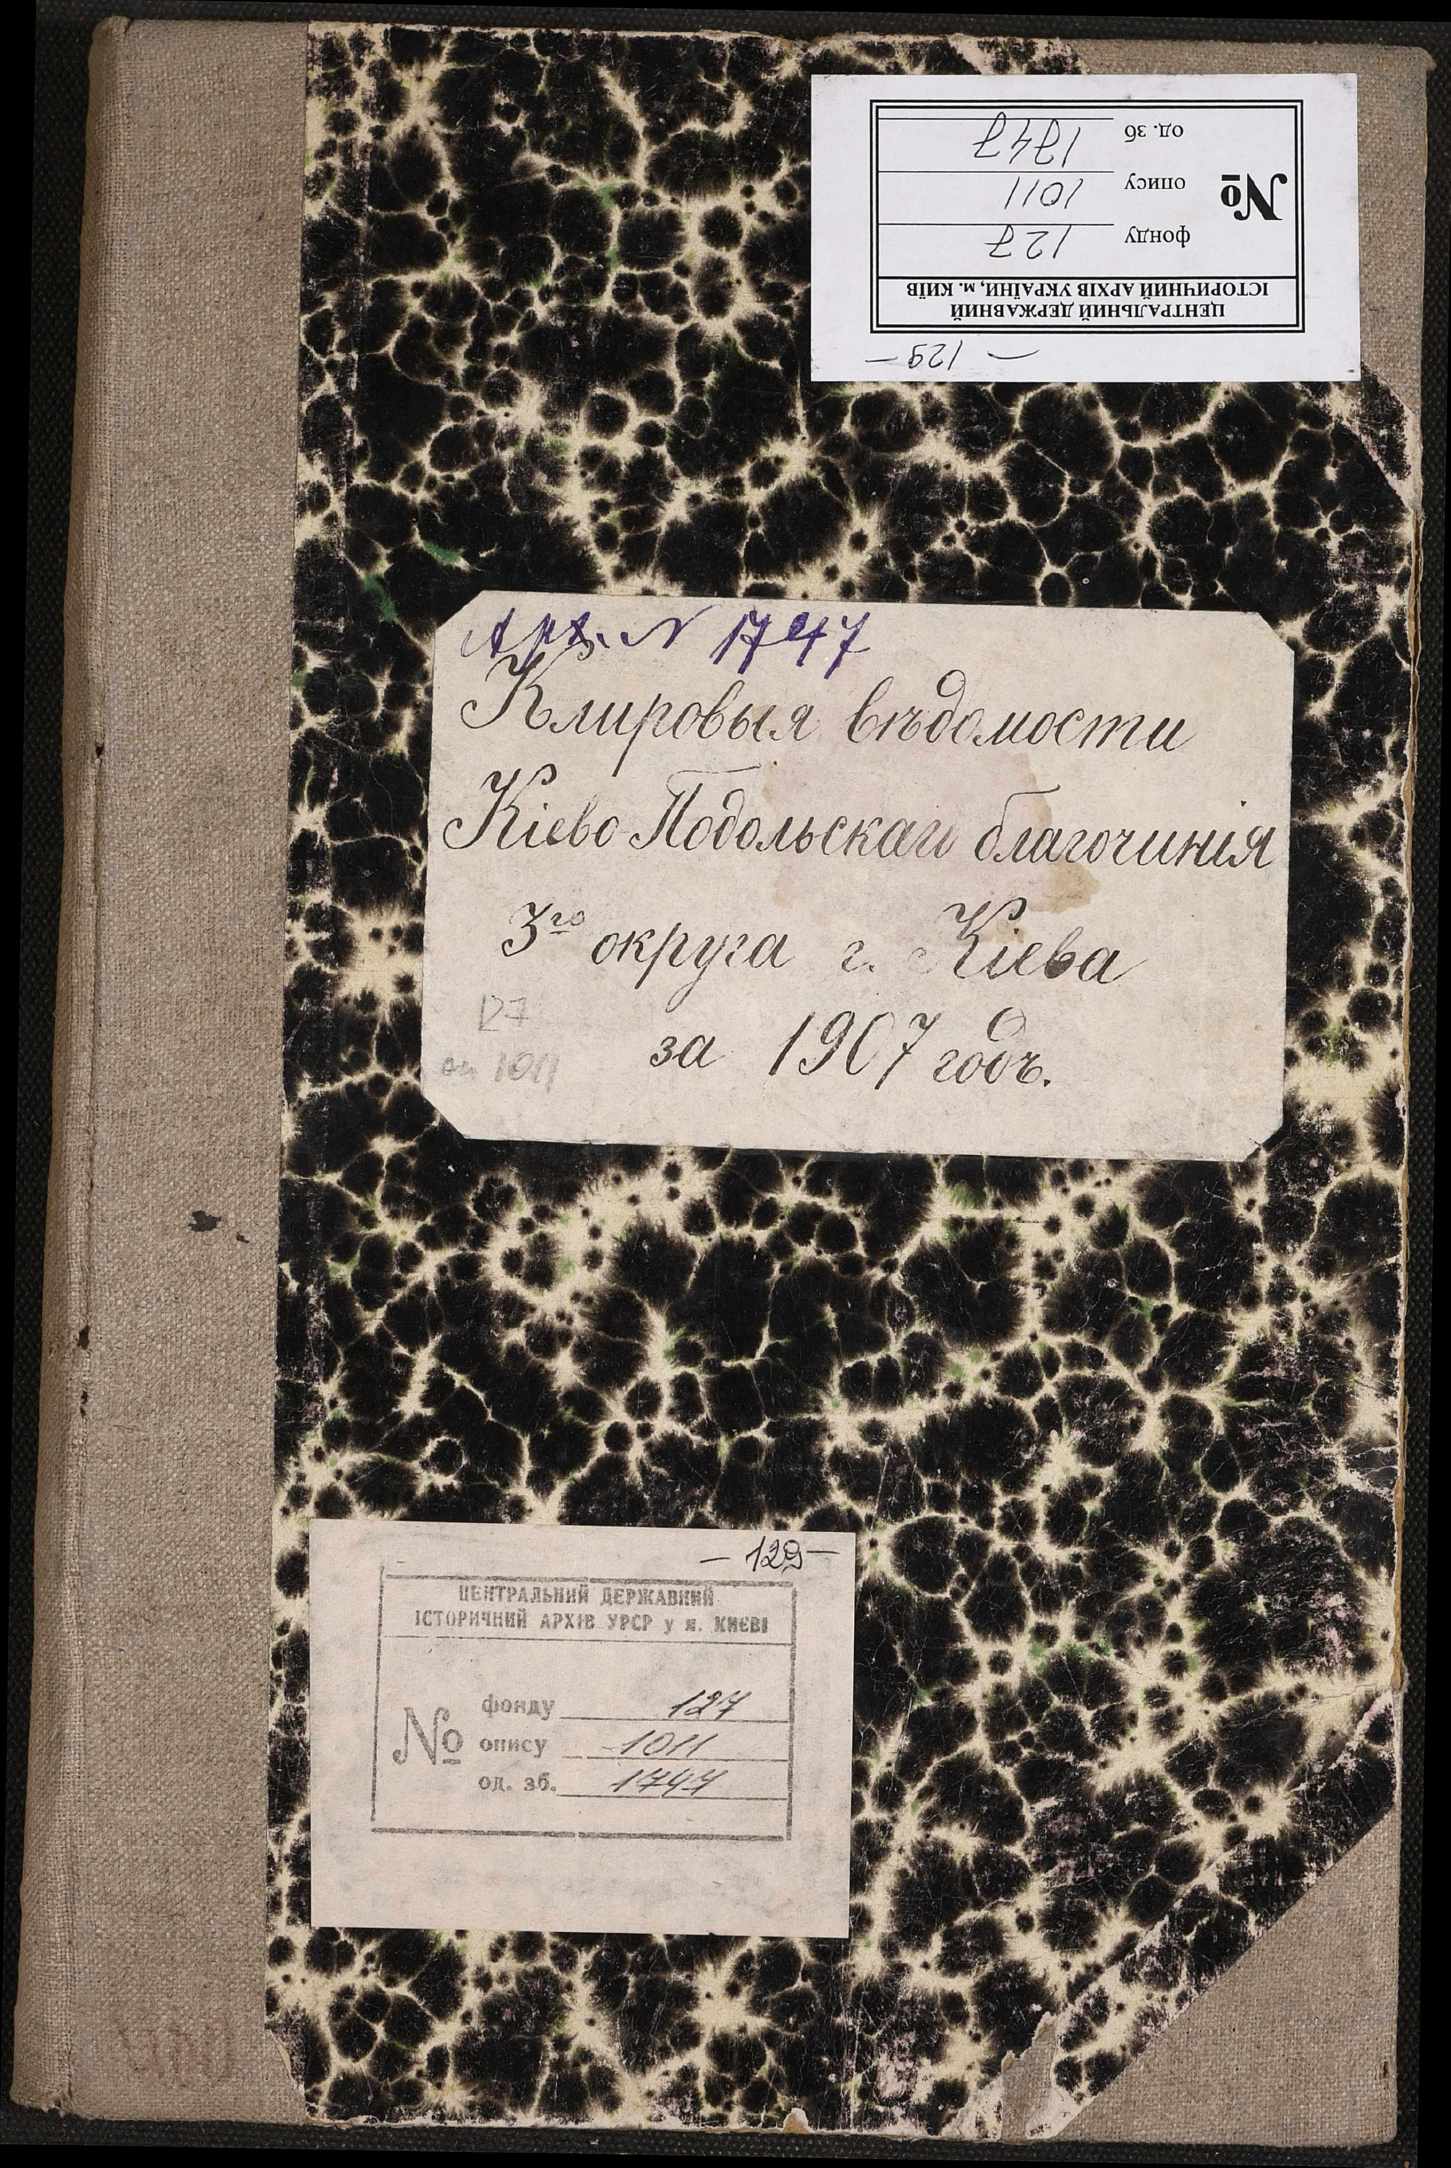 од. зб 1747
№ опису 1011
фонду 127
ЦЕНТРАЛЬНИЙ ДЕРЖАВНИЙ
ІСТОРИЧНИЙ АРХІВ УКРАЇНИ, м. КИЇВ
— 129 —
Арх. N 1747
Клировыя вѣдомости
Кіево Подольскаго благочинія
3го округа г. Кіева
127
за 1907 годъ.
оп 1011
— 129 —
ЦЕНТРАЛЬНИЙ ДЕРЖАВНИЙ
ІСТОРИЧНИЙ АРХІВ УРСР у м. КИЄВІ
фонду 127
№ опису 1011
од. зб. 1747